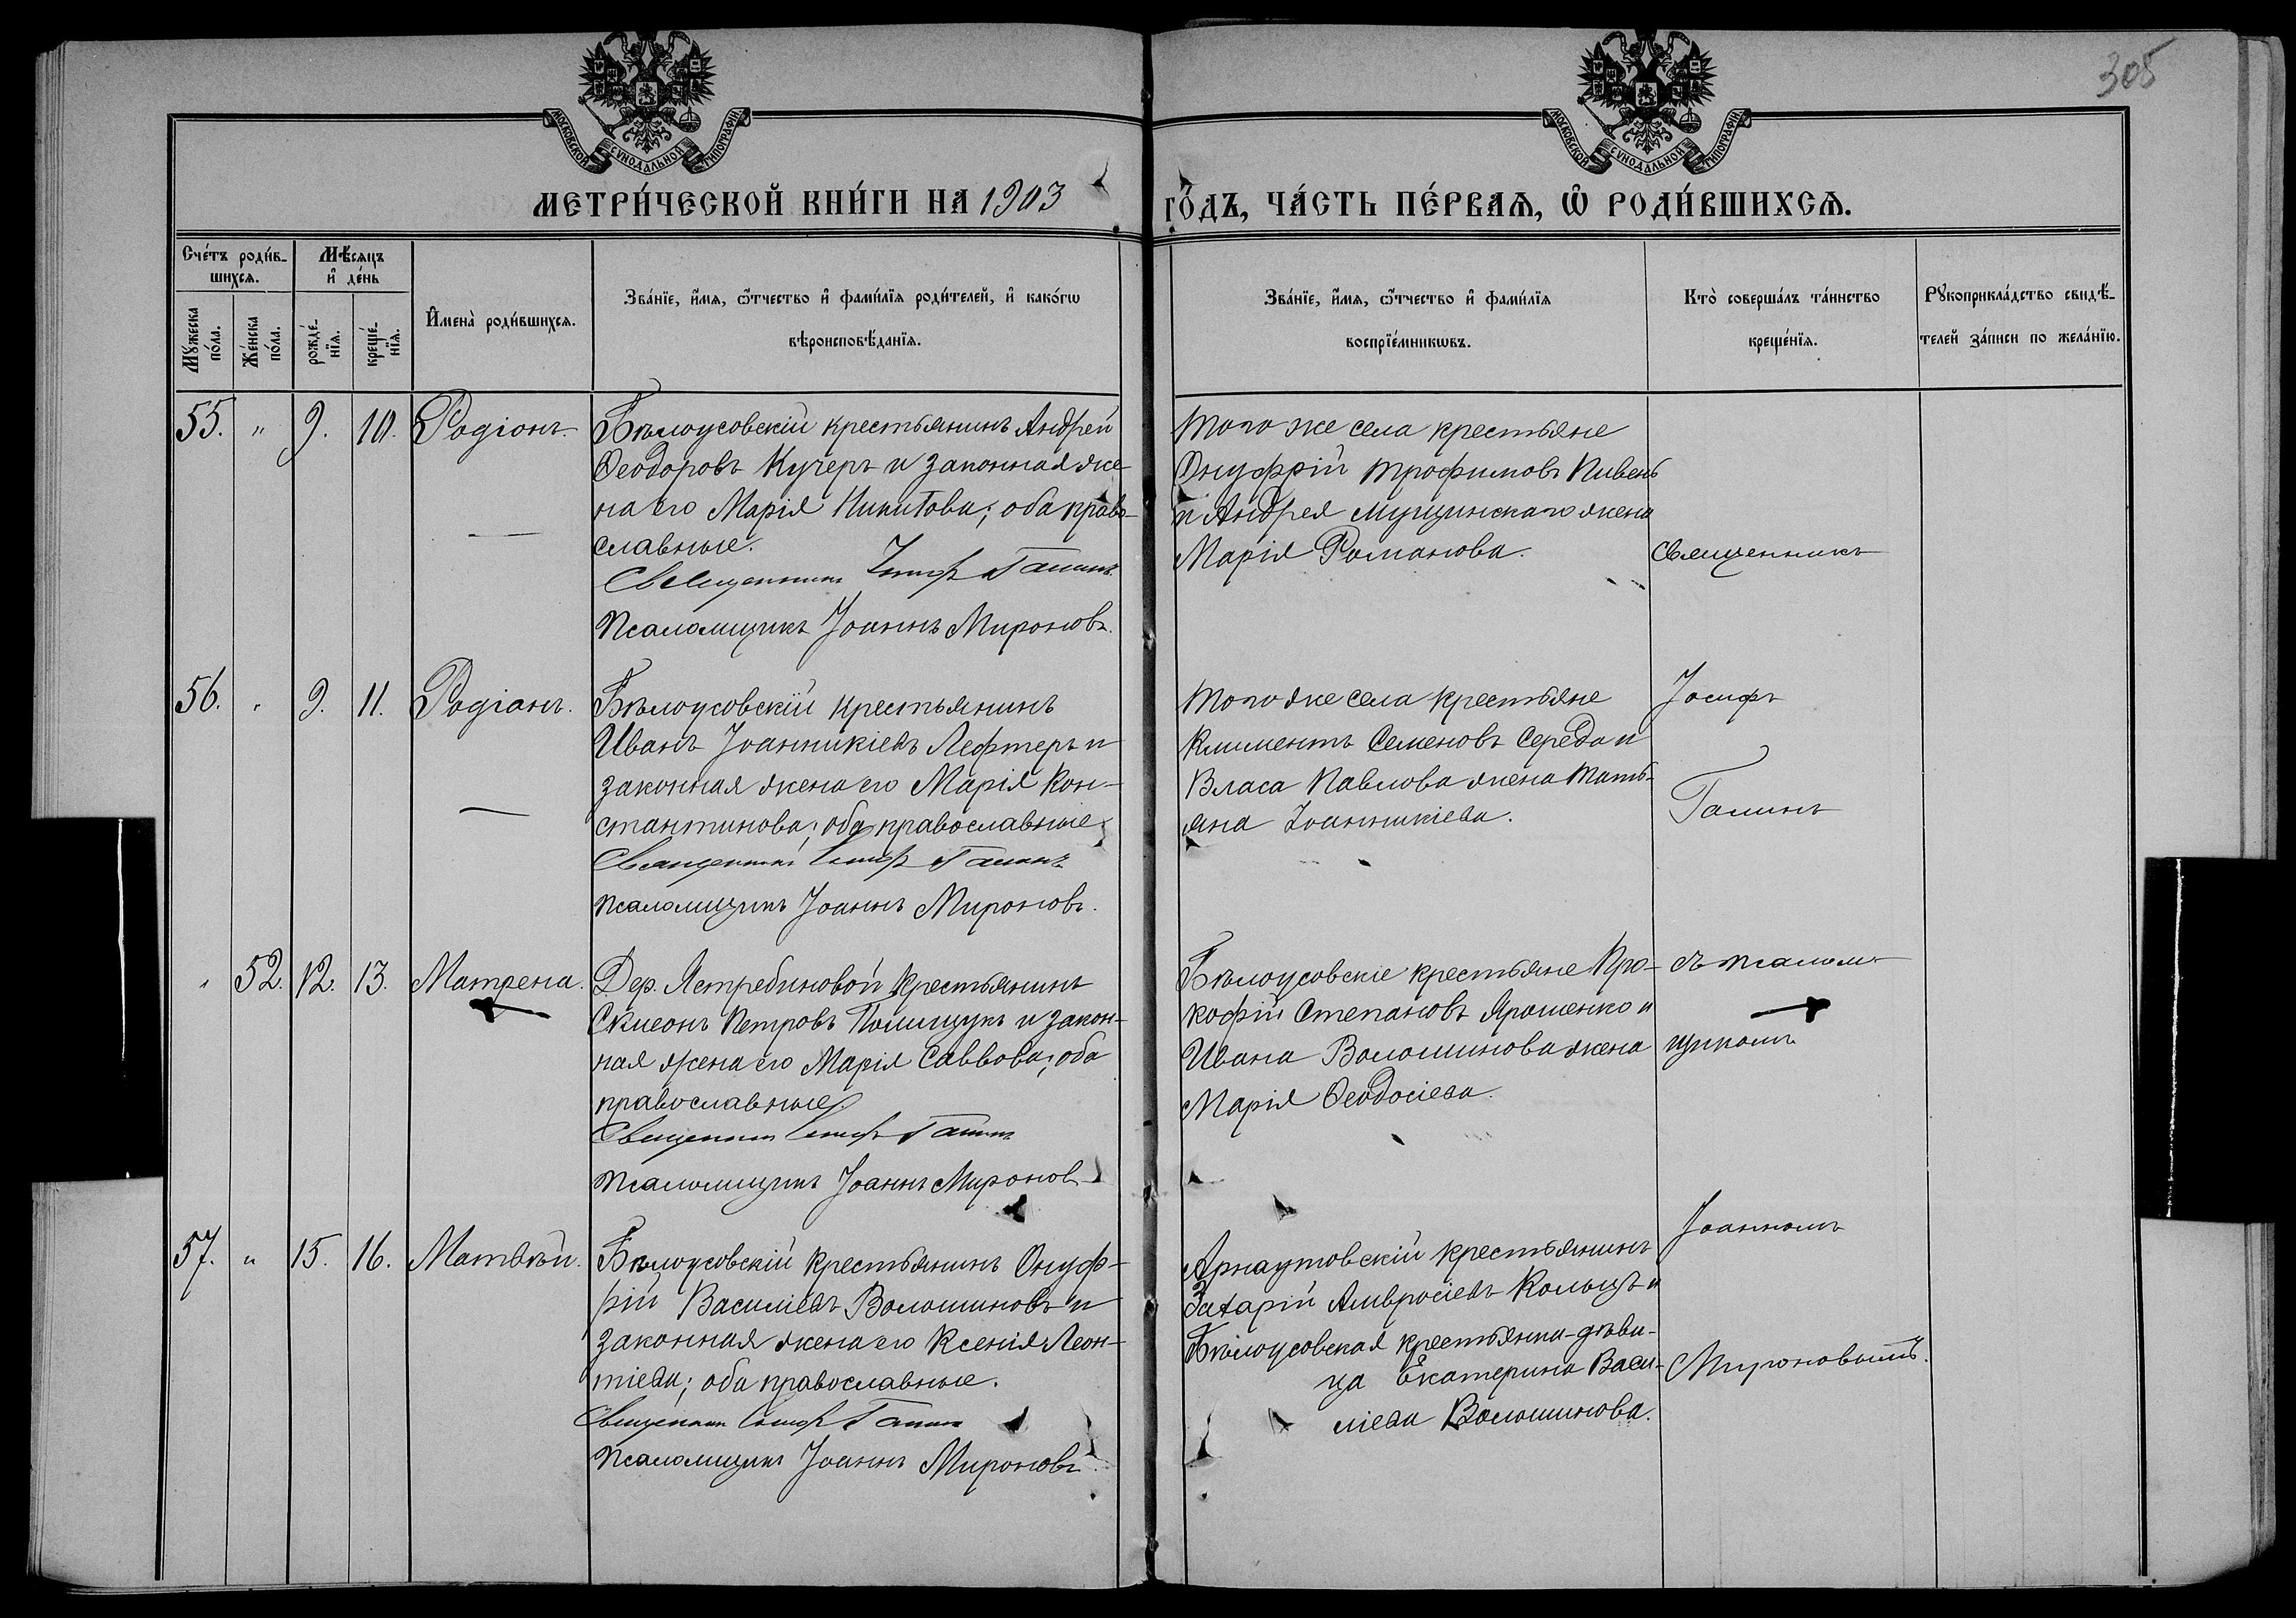 305
МОСКОВСКОЙ СѴНОДАЛЬНОЙ ТИПОГРАФІИ
МОСКОВСКОЙ СѴНОДАЛЬНОЙ ТИПОГРАФІИ
МЕТРИ́ЧЕСКОЙ КНИ́ГИ НА 1903
ГО́ДЪ, ЧА́СТЬ ПЕ́РВАѦ, Ѡ҆ РОДИ́ВШИХСѦ.
Сче́тъ роди́в-
шихсѧ.
Мꙋ́жеска
по́ла.
Же́нска
по́ла.
Мѣ́сѧцъ
и҆ де́нь
рожде́-
нїѧ.
креще́-
нїѧ.
И҆мена̀ роди́вшихсѧ.
Зва́нїе, и҆́мѧ, ѻ҆́тчество и҆ фами́лїѧ роди́телей, и҆ како́гѡ
вѣроисповѣ́данїѧ.
Зва́нїе, и҆́мѧ, ѻ҆́тчество и҆ фами́лїѧ
воспрїе́мникѡвъ.
Кто̀ соверша́лъ та́инство
креще́нїѧ.
Рꙋкоприкла́дство свидѣ́-
телей за́писи по жела́нїю.
55. " 9. 10. Родіонъ.
Бѣлоусовскій крестьянинъ Андрей
Ѳеодоровъ Кучеръ и законная же-
на его Марія Никитова; оба право-
славные.
Священникъ Іосифъ Галинъ
Псаломщикъ Іоаннъ Мироновъ.
Того же села крестьяне
Онуфрій Трофимовъ Пивень
и Андрея Мущинскаго жена
Марія Романова.
Священникъ
56. " 9. 11. Родіонъ.
Бѣлоусовскій крестьянинъ
Иванъ Іоанникіевъ Лефтеръ и
законная жена его Марія Кон-
стантинова; оба православные.
Священникъ Іосифъ Галинъ
Псаломщикъ Іоаннъ Мироновъ.
Того же села крестьяне
Климентъ Семеновъ Середа и
Власа Павлова жена Тать-
яна Іоанникіева.
Іосифъ
Галинъ
" 52. 12. 13. Матрена.
Дер. Ястребиновой крестьянинъ
Симеонъ Петровъ Полищукъ и закон-
ная жена его Марія Саввова; оба
православные.
Священникъ Іосифъ Галинъ
Псаломщикъ Іоаннъ Мироновъ
Бѣлоусовскіе крестьяне Про-
кофій Степановъ Ярошенко и
Ивана Волошинова жена
Марія Ѳеодосіева.
съ псалом-
щикомъ
57. " 15. 16. Матвѣй.
Бѣлоусовскій крестьянинъ Онуф-
рій Василіевъ Волошиновъ и
законная жена его Ксенія Леон-
тіева; оба православные.
Священникъ Іосифъ Галинъ
Псаломщикъ Іоаннъ Мироновъ.
Арнаутовскій крестьянинъ
Захарій Амвросіевъ Кольцъ и
Бѣлоусовская крестьянка-дѣви-
ца Екатерина Васи-
ліева Волошинова.
Іоанномъ
Мироновымъ.